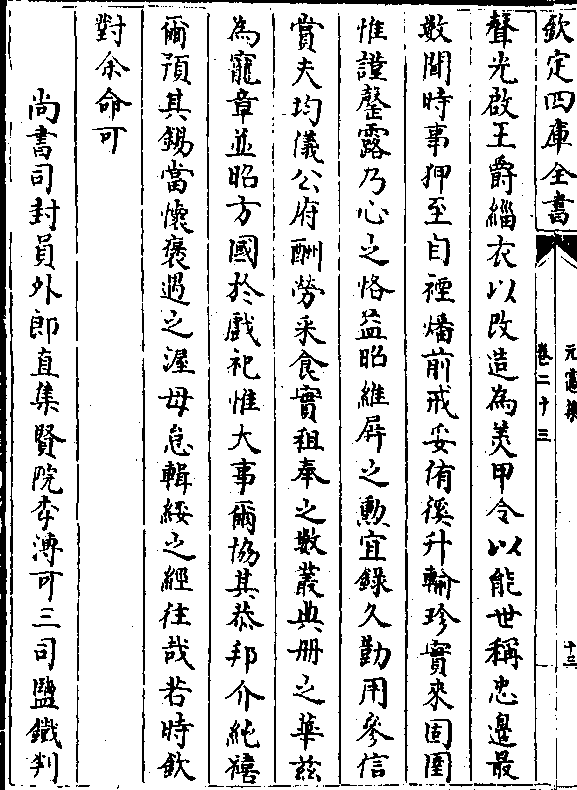 欽定四庫全書
元憲集
卷二十三
十三
聲光啟王爵緇衣以改造為美甲令以能世稱忠邊最
數聞時事狎至自禋燔前戒妥侑徯升輪珍實來固圉
惟謹罄露乃心之恪益昭維屏之勲宜錄久勤用參信
賞夫均儀公府酬勞采食實租奉之數叢典册之華兹
為寵章並昭方國於戲祀惟大事爾協其恭邦介純禧
爾預其錫當懷褒遇之渥毋怠輯綏之經往哉若時欽
對余命可
尚書司封員外郎直集賢院李溥可三司鹽鐵判